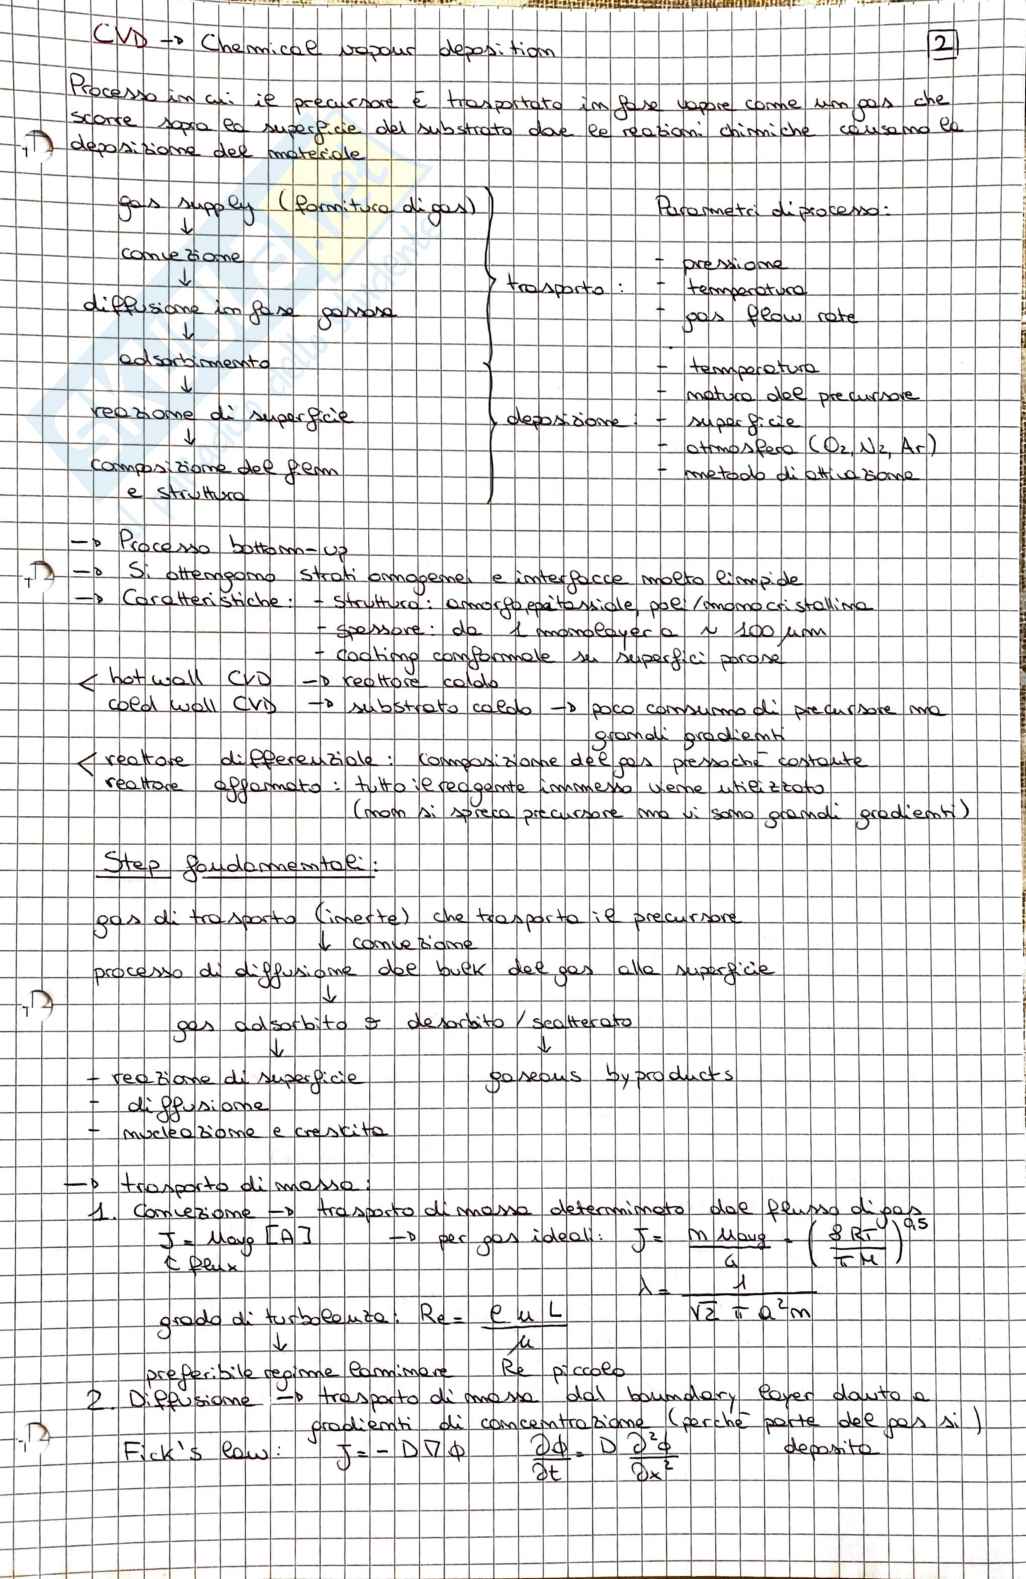 CVD → Chemical vapour deposition
2
Processo in cui il precursore è trasportato in fase vapore come un gas che
scorre sopra la superficie del substrato dove le reazioni chimiche causano la
deposizione del materiale
gas supply (fornitura di gas)
↓
convezione
↓
diffusione in fase gassosa
↓
adsorbimento
↓
reazione di superficie
↓
composizione del film
e struttura
Parametri di processo:
trasporto: - pressione
- temperatura
- gas flow rate
deposizione: - temperatura
- natura del precursore
- superficie
- atmosfera (O2, N2, Ar)
- metodo di attivazione
→ Processo bottom-up
→ Si ottengono strati omogenei e interfacce molto limpide
→ Caratteristiche: - struttura: amorfa, epitassiale, poli/monocristallina
- spessore: da 1 monolayer a ~ 100 μm
- coating conformale su superfici porose
< hot wall CVD → reattore caldo
cold wall CVD → substrato caldo → poco consumo di precursore ma
grandi gradienti
< reattore differenziale: composizione del gas pressoché costante
reattore affamato: tutto il reagente immesso viene utilizzato
(non si spreca precursore ma vi sono grandi gradienti)
Step fondamentali:
gas di trasporto (inerte) che trasporta il precursore
↓ convezione
processo di diffusione dal bulk del gas alla superficie
↓
gas adsorbito o desorbito / scatterato
↓ ↓
- reazione di superficie gaseous byproducts
- diffusione
- nucleazione e crescita
→ trasporto di massa:
1. Convezione → trasporto di massa determinato dal flusso di gas
J = Uavg [A] → per gas ideali: J = n Uavg / 4 = (8RT / πM)^0,5
flux
λ = 1 / √2 π a²n
grado di turbolenza: Re = ρ u L / μ
↓
preferibile regime laminare Re piccolo
2. Diffusione → trasporto di massa dal boundary layer dovuto a
gradienti di concentrazione (perché parte del gas si)
deposita
Fick's law: J = - D ∇ϕ ∂ϕ/∂t = D ∂²ϕ/∂x²